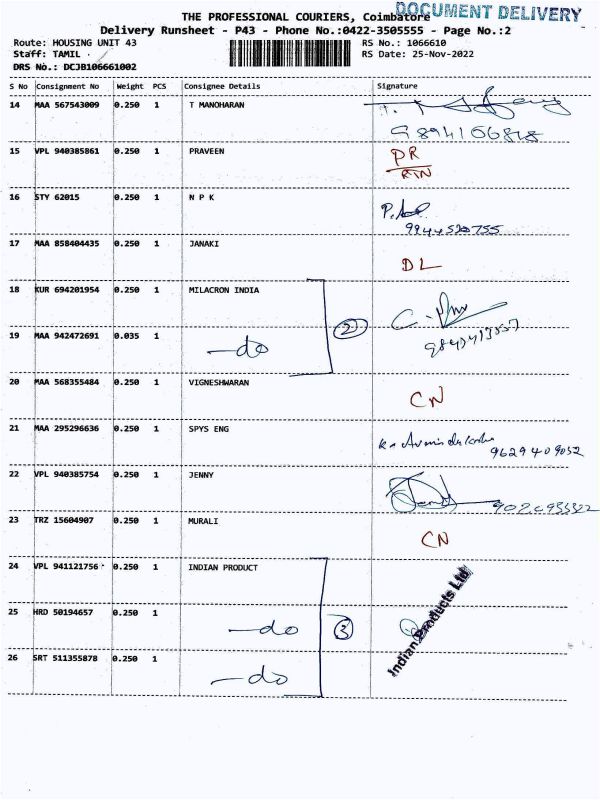 THE PROFESSIONAL COURIERS, Coimbatore
DOCUMENT DELIVERY
Delivery Runsheet - P43 - Phone No.:0422-3505555 - Page No.:2
Route: HOUSING UNIT 43 RS No.: 1066610
Staff: TAMIL RS Date: 25-Nov-2022
DRS No.: DCJB106661002
S No Consignment No Weight PCS Consignee Details Signature
14 MAA 567543009 0.250 1 T MANOHARAN
15 VPL 940385861 0.250 1 PRAVEEN DR
RTN
16 STY 62015 0.250 1 N P K
9944520755
17 MAA 858404435 0.250 1 JANAKI DL
18 KUR 694201954 0.250 1 MILACRON INDIA
2
19 MAA 942472691 0.035 1 -do
20 MAA 568355484 0.250 1 VIGNESHWARAN CN
21 MAA 295296636 0.250 1 SPYS ENG
9629409052
22 VPL 940385754 0.250 1 JENNY
23 TRZ 15604907 0.250 1 MURALI CN
24 VPL 941121756 0.250 1 INDIAN PRODUCT
Indian Products Ltd
25 HRD 50194657 0.250 1 -do 3
26 SRT 511355878 0.250 1 -do